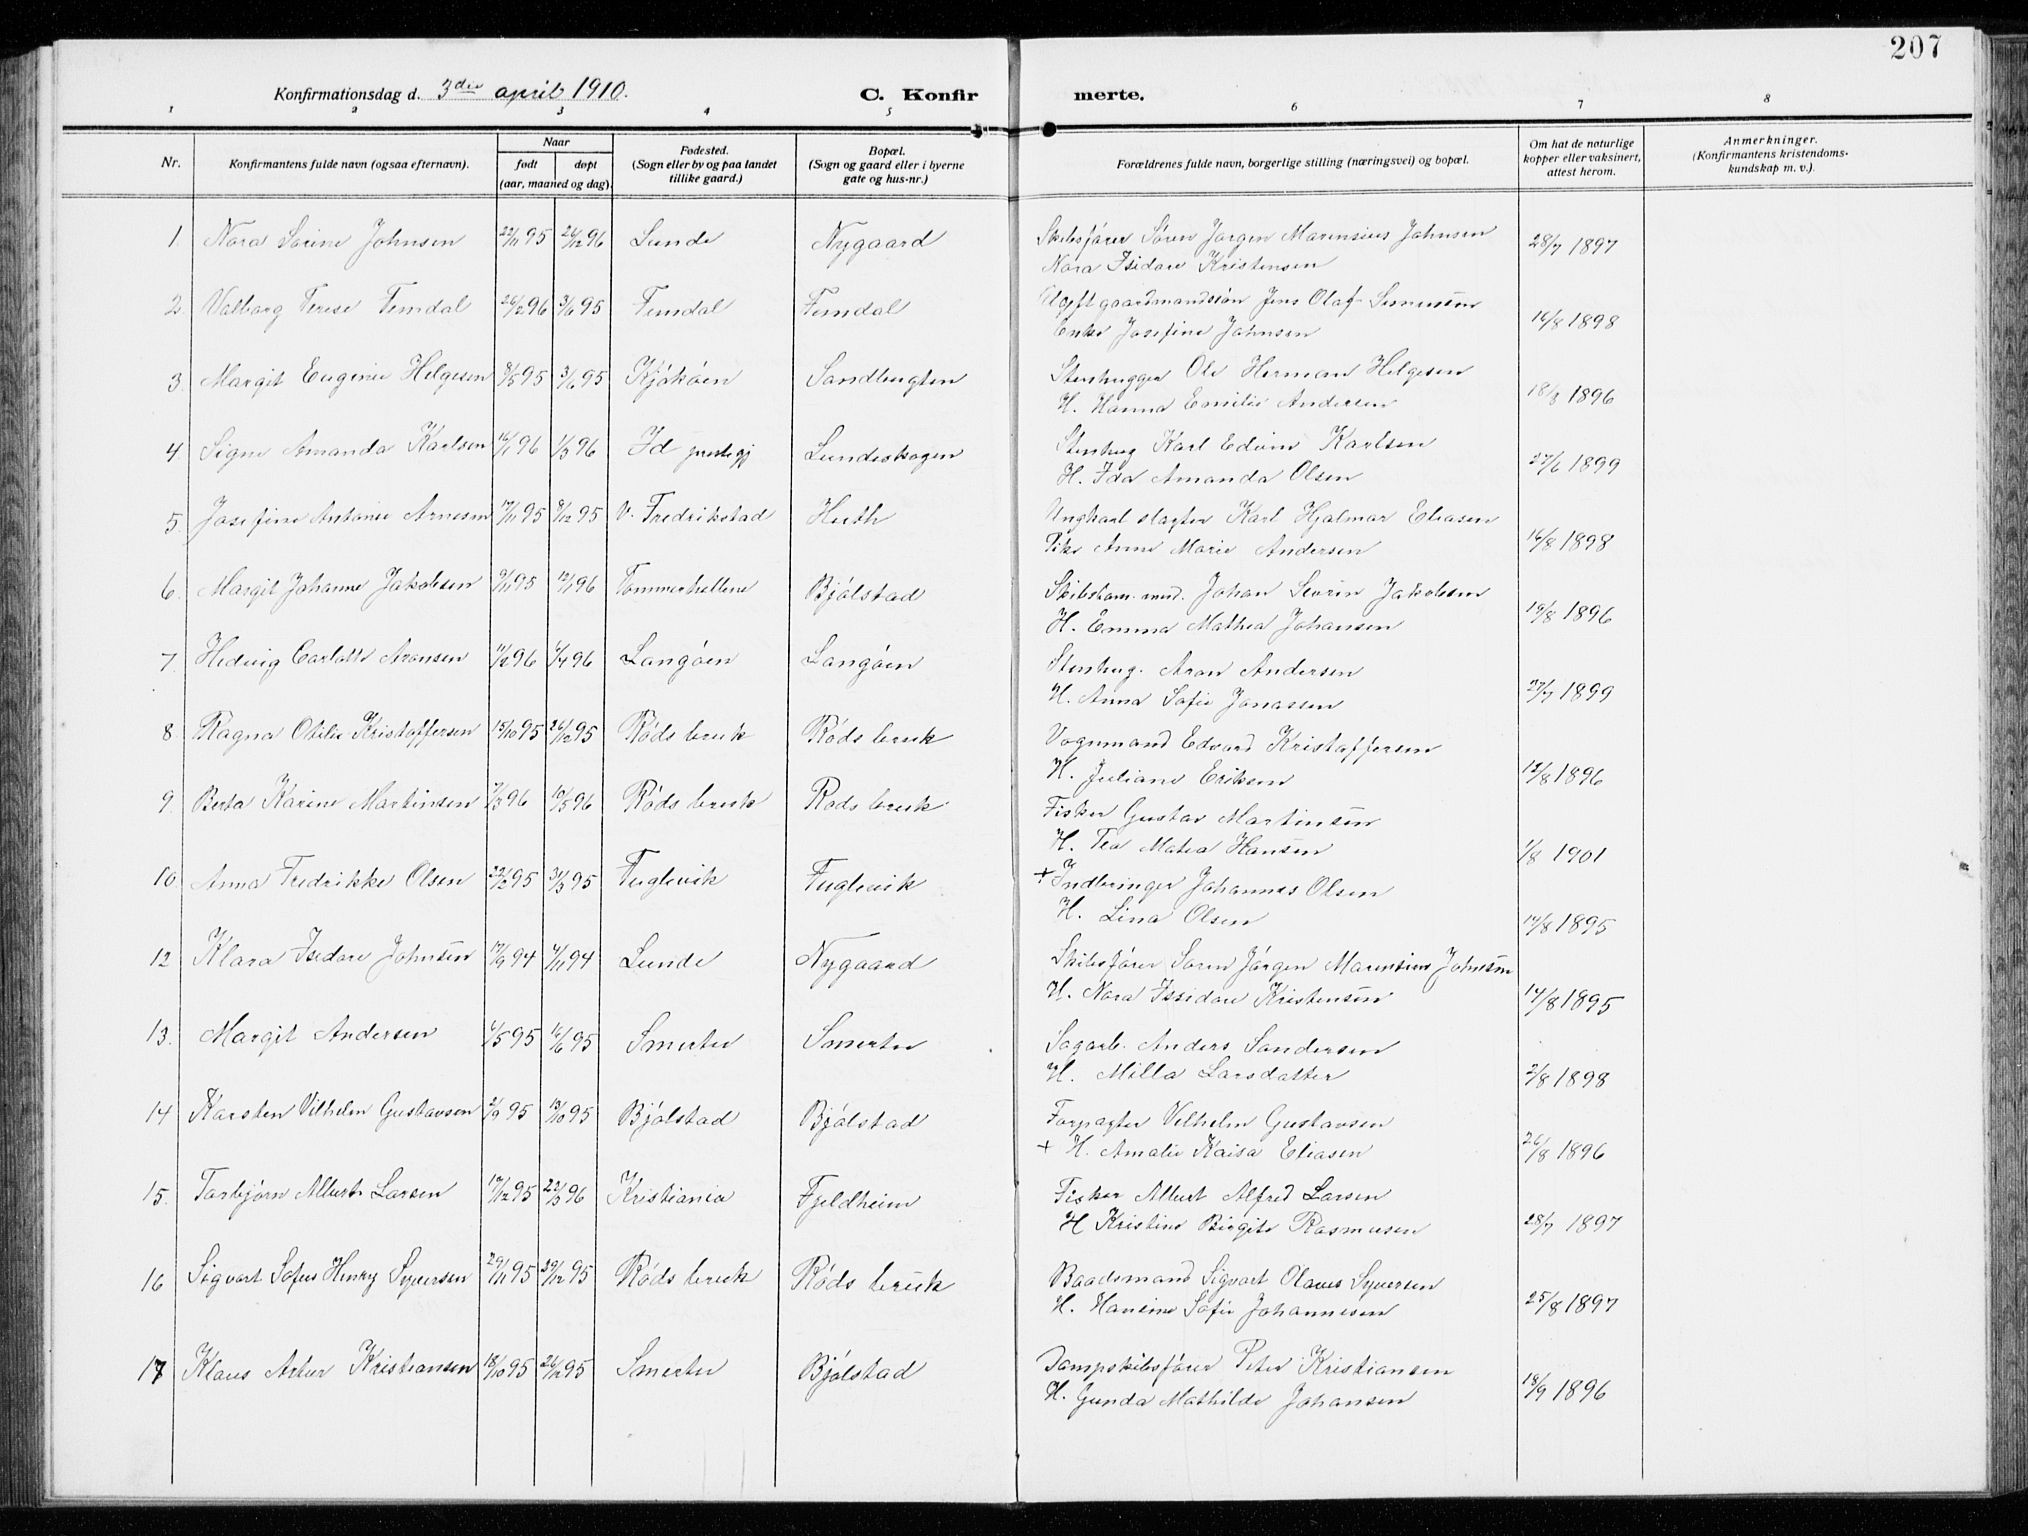 207
Konfirmationsdag d. 3die april 1910. C. Konfirmerte.
1 2 3 4 5 6 7 8
Nr. Konfirmantens fulde navn (ogsaa efternavn). Naar født døpt (aar, maaned og dag). Fødested. (Sogn eller by og paa landet tillike gaard.) Bopæl. (Sogn og gaard eller i byerne gate og hus-nr.) Forældrenes fulde navn, borgerlige stilling (næringsvei) og bopæl. Om hat de naturlige kopper eller vaksinert, attest herom. Anmerkninger. (Konfirmantens kristendomskundskap m. v.).
1. Nora Sorine Johnsen 22/11 95 26/12 96 Lunde Nygaard Skibsfører Søren Jørgen Marensius Johnsen 28/7 1897
Nora Isidore Kristensen
2. Valborg Terese Femdal 26/2 96 3/6 95 Femdal Femdal gaardmandssøn Jens Olaf 16/8 1898
Enke Josefine Johnsen
3. Margit Eugenie Helgesen 8/5 95 3/6 95 Kjøkøen Sandbugten Stenhugger Ole Herman Helgesen 18/8 1896
H. Hanna Emilie Andersen
4. Signe Amanda Karlsen 16/1 96 1/3 96 Id prestegj Lundeskogen Stenhug Karl Edvin Karlsen 27/6 1899
H. Ida Amanda Olsen
5. Josefine Antonie Arnesen 17/11 95 8/12 95 V. Fredrikstad Huth Ungkarl slagter Karl Hjalmar Eliasen 16/8 1898
Pike Anne Marie Andersen
6. Margit Johanne Jakobsen 9/11 95 12/1 96 Tommerhellene Bjølstad Skibstøm. mnd. Johan Severin Jakobsen 19/8 1896
H. Emma Mathea Johansen
7. Hedvig Carlotte Aronsen 11/2 96 6/4 96 Langøen Langøen Stenhug. Aron Andersen 27/7 1899
H. Anna Sofie Jonassen
8. Ragna Otilie Kristoffersen 15/10 95 26/12 95 Røds bruk Røds bruk Vognmand Edvard Kristoffersen 12/8 1896
H. Juliane Eriksen
9. Berta Karine Martinsen 7/3 96 10/5 96 Røds bruk Røds bruk Fisker Gustav Martinsen 1/8 1901
H. Tea Matea Hansen
10. Anna Fredrikke Olsen 22/2 95 31/3 95 Fuglevik Fuglevik + Indbringer Johannes Olsen 14/8 1895
H. Lina Olsen
12 Klara Isedore Johnsen 17/9 94 4/11 94 Lunde Nygaard Skibsfører Soren Jørgen Marensius Johnsen 14/8 1895
H. Nora Issidore Kristensen
13. Margit Andersen 6/5 95 16/6 95 Smertu Smertu Sagarb. Anders Sandersen 2/8 1898
H. Milla Larsdatter
14 Karsten Vilhelm Gustavsen 2/9 95 13/10 95 Bjølstad Bjølstad Forpagter Vilhelm Gustavsen 26/8 1896
+ H. Amalie Kaisa Eliasen
15. Torbjørn Albert Larsen 17/12 95 22/3 96 Kristiania Fjeldheim Fisker Albert Alfred Larsen 28/7 1897
H Kristine Birgite Rasmusen
16 Sigvart Sofus Henry Syversen 29/11 95 29/12 95 Røds bruk Røds bruk Baadsmand Sigvart Olaves Syversen 25/8 1897
H. Hansine Sofie Johannesen
17 Klaus Artur Kristiansen 18/10 95 26/12 95 Smertu Bjølstad Dampskibsfører Peter Kristiansen 18/9 1896
H. Gunda Mathilde Johansen